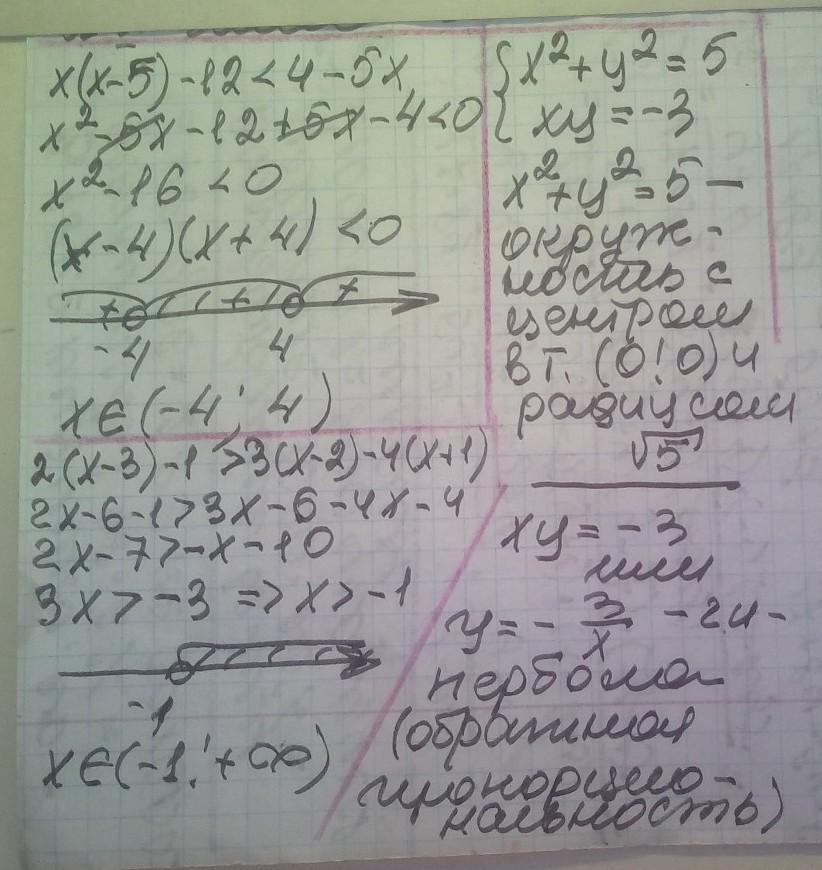 x(x-5)-12<4-5x
x²-5x-12+5x-4<0
x²-16<0
(x-4)(x+4)<0
+ + +
-4 4
x∈(-4; 4)
2(x-3)-1>3(x-2)-4(x+1)
2x-6-1>3x-6-4x-4
2x-7>-x-10
3x>-3 => x>-1
-1
x∈(-1; +∞)
{x²+y²=5
{xy=-3
x²+y²=5 –
окруж-
ность с
центром
в т. (0;0) и
радиусом
√5
xy=-3
или
y=-3/x - ги-
пербола
(обратная
пропорцио-
нальность)